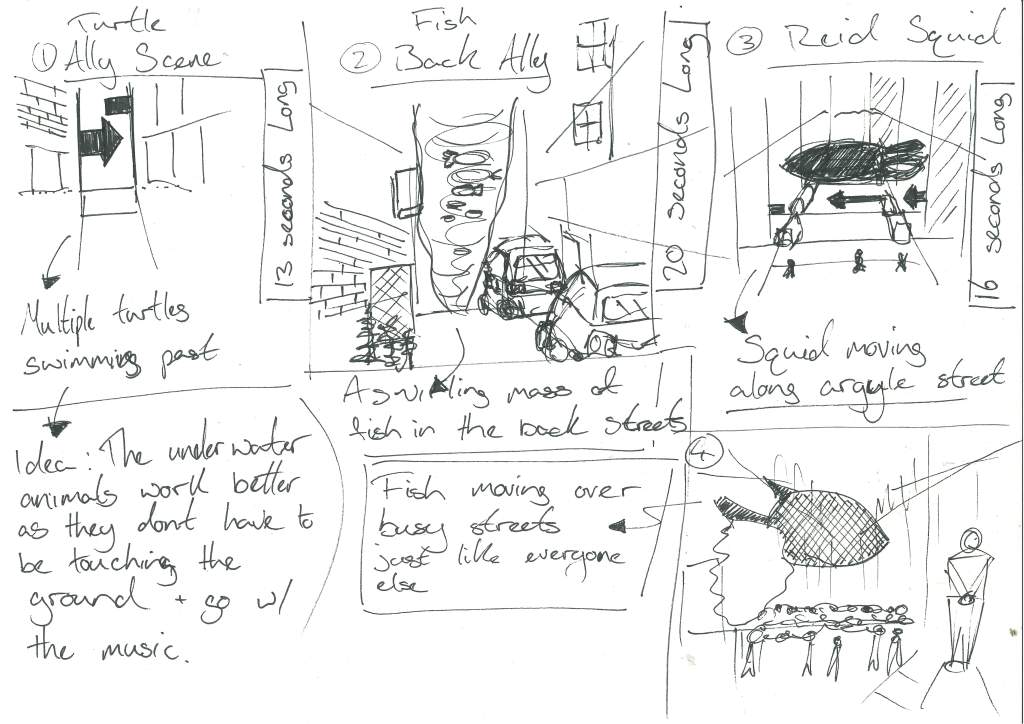 Turtle
① Ally Scene
13 seconds Long
Multiple turtles
swimming past
Idea: The underwater
animals work better
as they dont have to
be touching the
ground + go w/
the music.
Fish
② Back Ally
20 seconds Long
mass of
fish in the back streets
Fish moving over
busy streets
just like everyone
else
③ Reid Squid
16 seconds Long
Squid moving
along argyle street
④